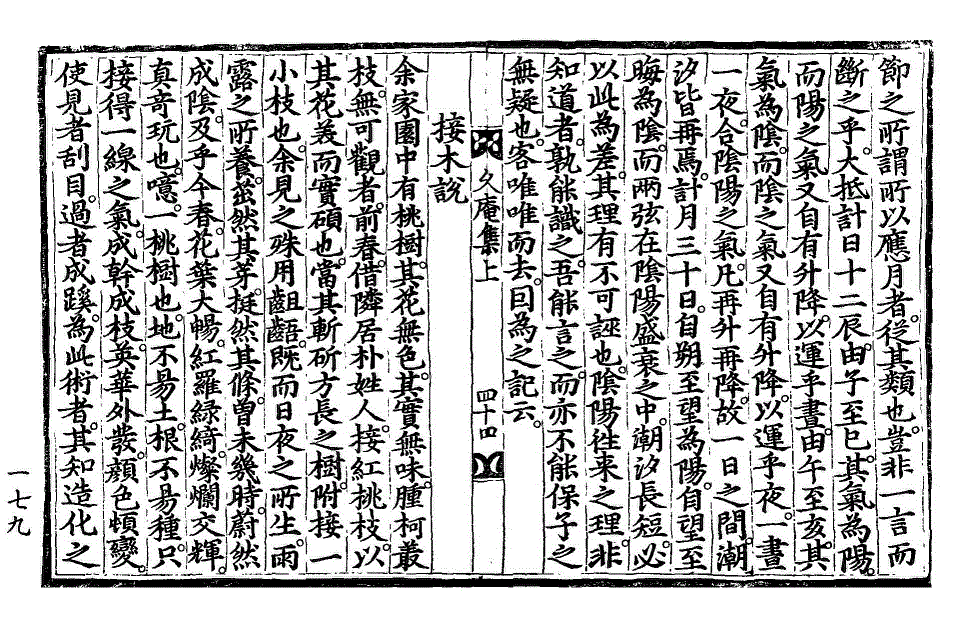 節之所謂所以應月者。從其類也。豈非一言而
斷之乎。大抵計日十二辰。由子至巳。其氣為陽。
而陽之氣又自有升降。以運乎晝。由午至亥。其
氣為陰。而陰之氣又自有升降。以運乎夜。一晝
一夜。合陰陽之氣。凡再升再降。故一日之間。潮
汐皆再焉。計月三十日。自朔至望為陽。自望至
晦為陰。而兩弦在陰陽盛衰之中。潮汐長短。必
以此為差。其理有不可誣也。陰陽往來之理。非
知道者。孰能識之。吾能言之。而亦不能保子之
無疑也。客唯唯而去。因為之記云。
久庵集上
四十四
接木說
余家園中有桃樹。其花無色。其實無味。腫柯叢
枝。無可觀者。前春。借隣居朴姓人。接紅桃枝。以
其花美而實碩也。當其斬斫方長之樹。附接一
小枝也。余見之殊用齟齬。既而日夜之所生。雨
露之所養。茁然其芽。挺然其條。曾未幾時。蔚然
成陰。及乎今春。花葉大暢。紅羅綠綺。燦爛交輝。
真奇玩也。噫。一桃樹也。地不易土。根不易種。只
接得一線之氣。成幹成枝。英華外發。顏色頓變。
使見者刮目。過者成蹊。為此術者。其知造化之
一七九